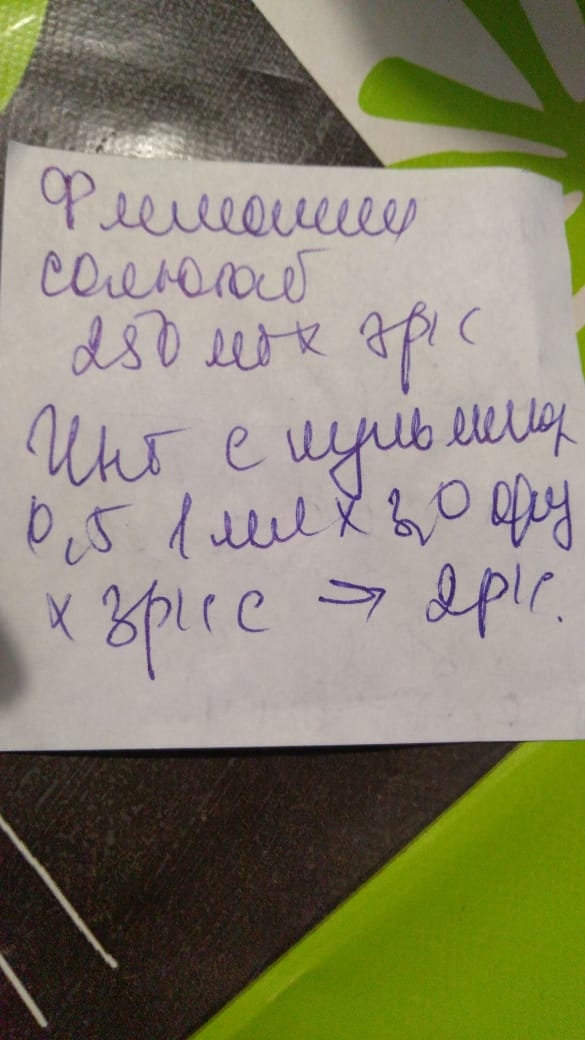 Флемоксин
солютаб
250 мг x 3р/с
Инг с пульмикор
0,5 1 мл x 3,0 физ
x 3р/с → 2р/с.